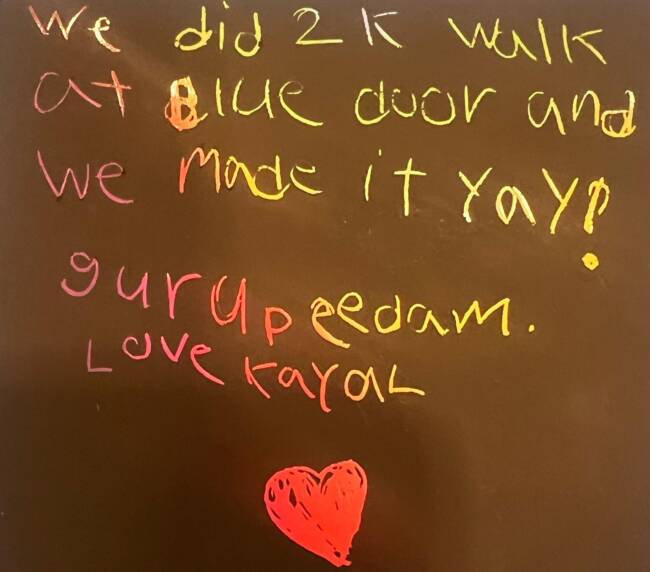 We did 2 K walk
at Blue door and
we made it yay!
gurupeedam.
Love Kayal